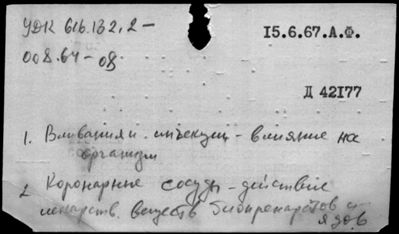 УДК 616.132.2-
008.64-08
15.6.67.А.Ф.
Д 42177
1. Вливания и инъекции - влияние на
организм
2. Коронарные сосуды - действие
лекарств. веществ биопрепаратов и
ядов